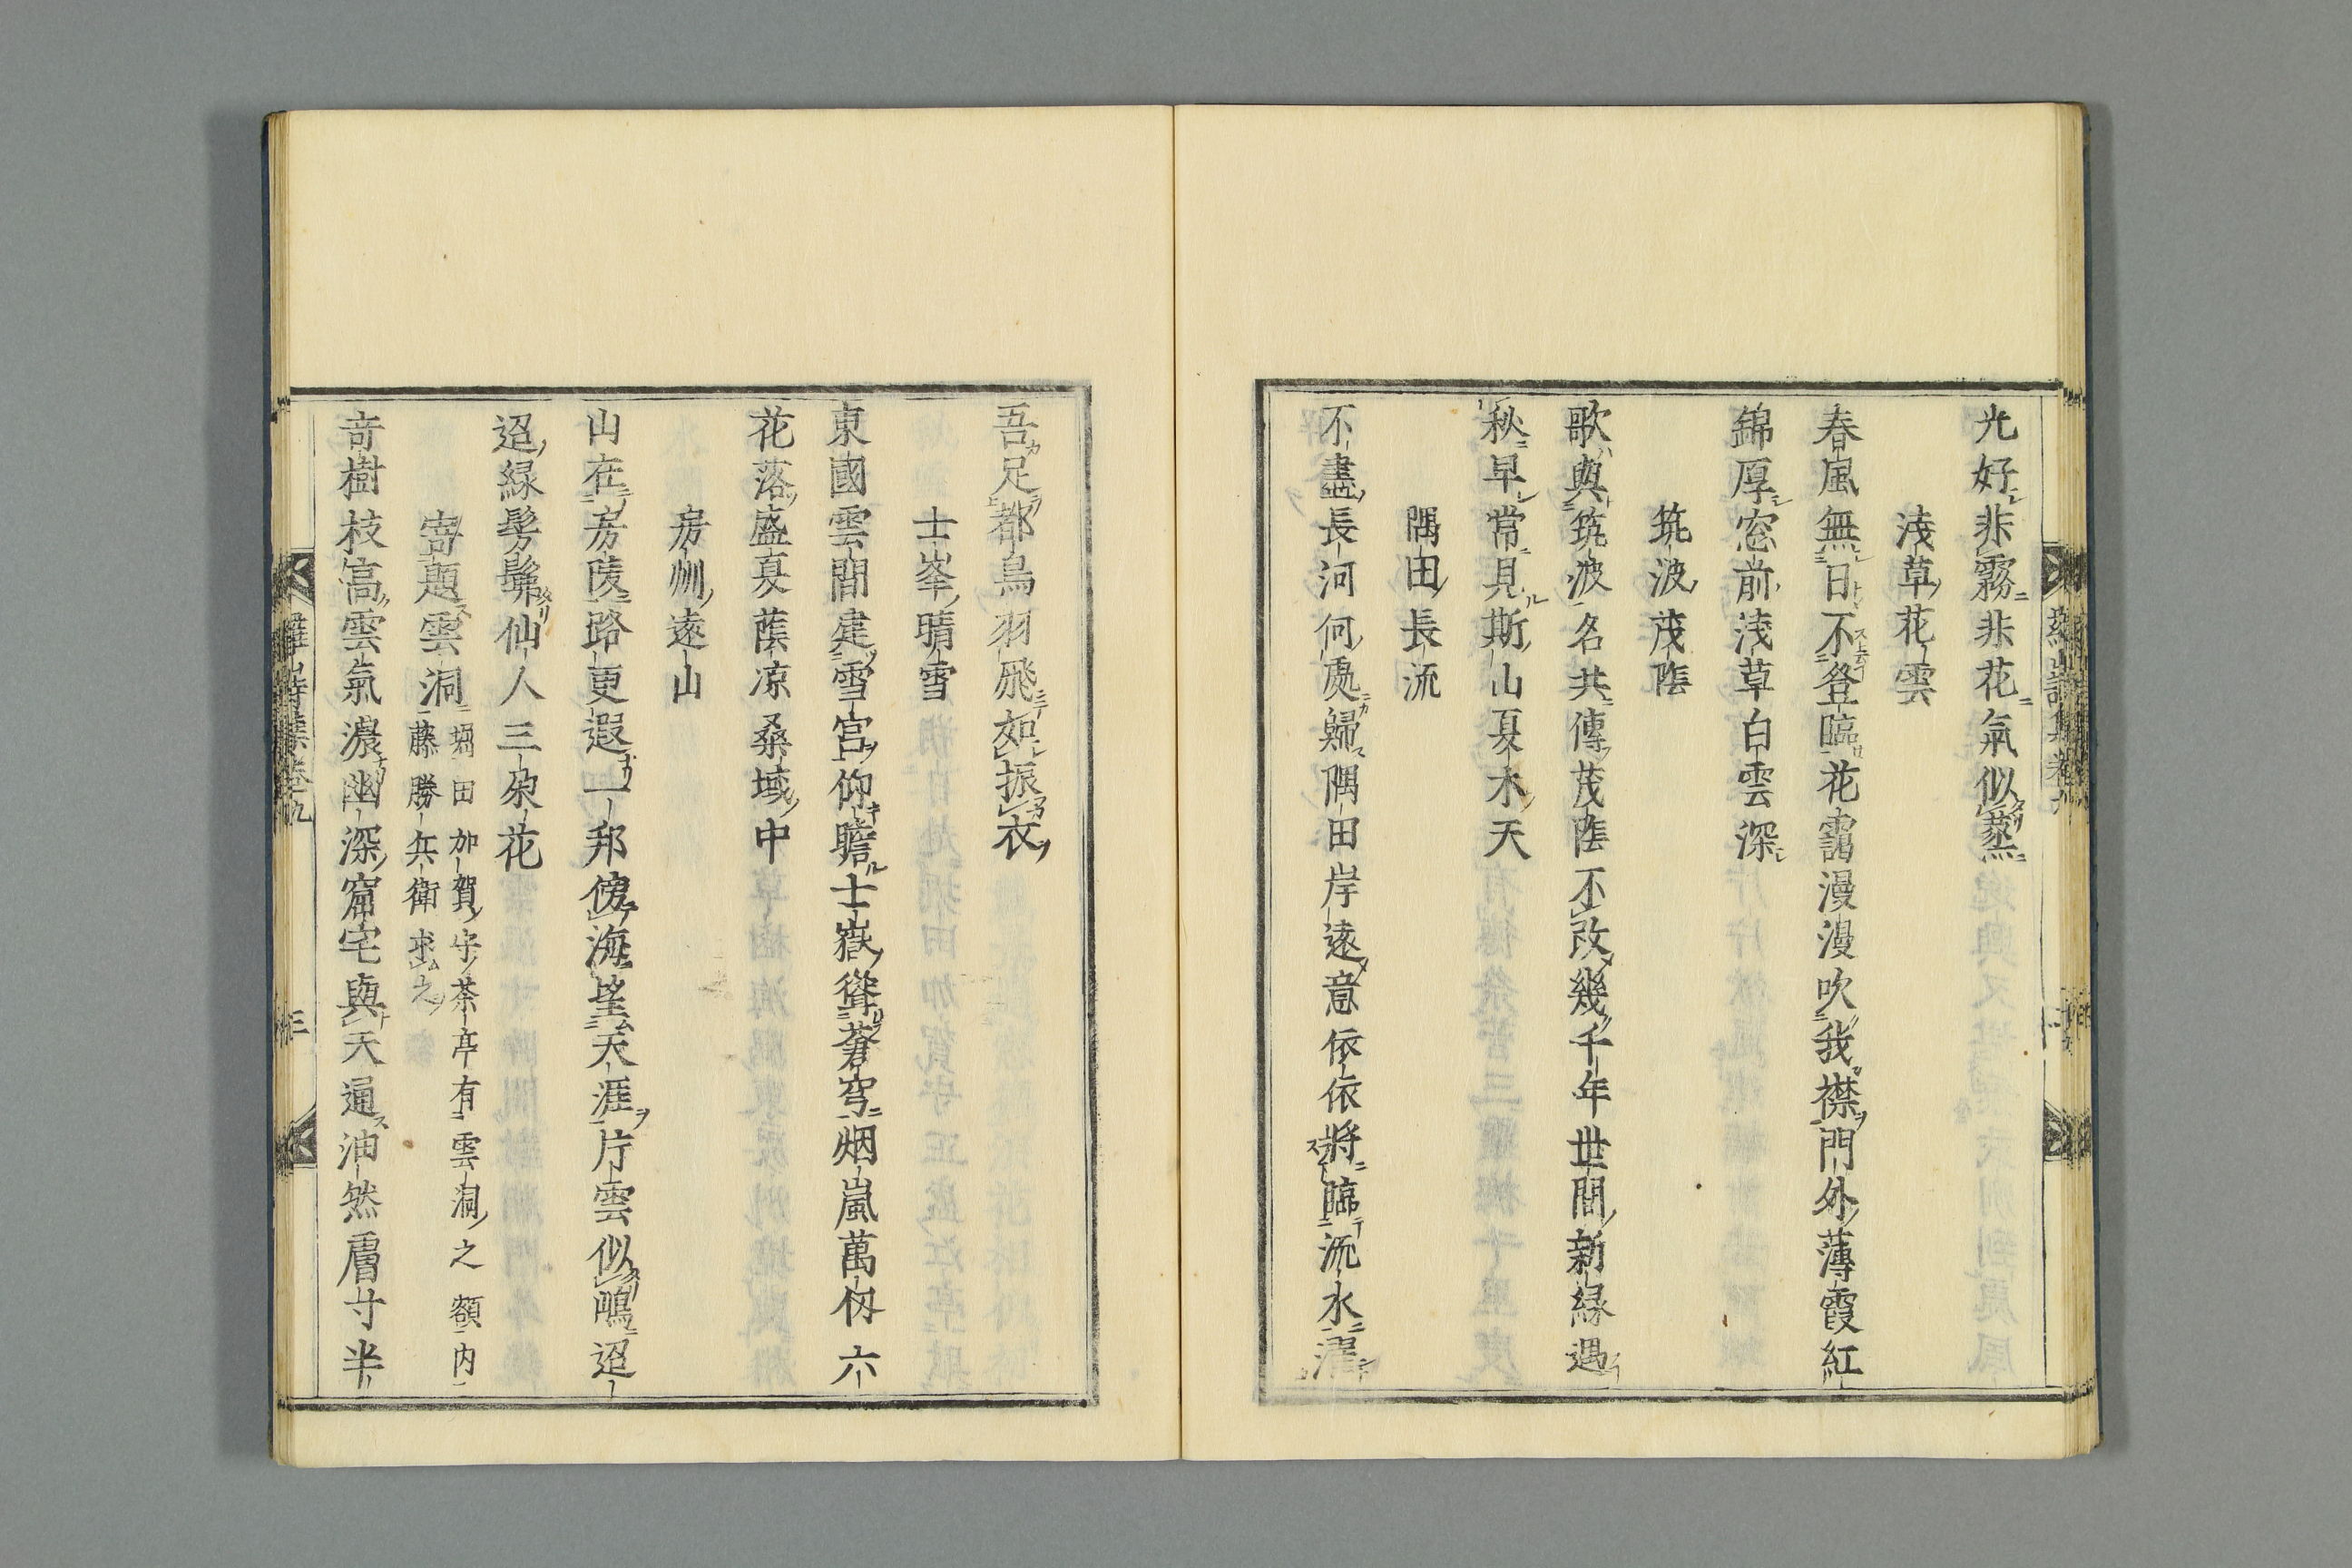 光好非霧非花氣似蒸
淺草花雲
春風無日不登臨花靄漫漫吹我襟門外薄霞紅
錦厚窓前淺草白雲深
筑波茂陰
歌與筑波名共傳茂陰不改幾千年世間新緑遇
秋早常見斯山夏木天
隅田長流
不盡長河何處歸隅田岸遠意依依將臨流水濯
吾足都鳥羽飛如振衣
士峯晴雪
東國雲間建雪宮仰瞻士嶽聳蒼穹烟嵐萬仭六
花落盛夏蔭凉桑域中
房州遠山
山在房陵路更遐一邦傍海望天涯片雲似鴫迢
迢緑髣髴仙人三朶花
寄題雲洞
堀田加賀守茶亭有雲洞之額内
藤勝兵衛求之
竒樹枝高雲氣濃幽深窟宅與天通油然膚寸半
羅山詩集卷九
三